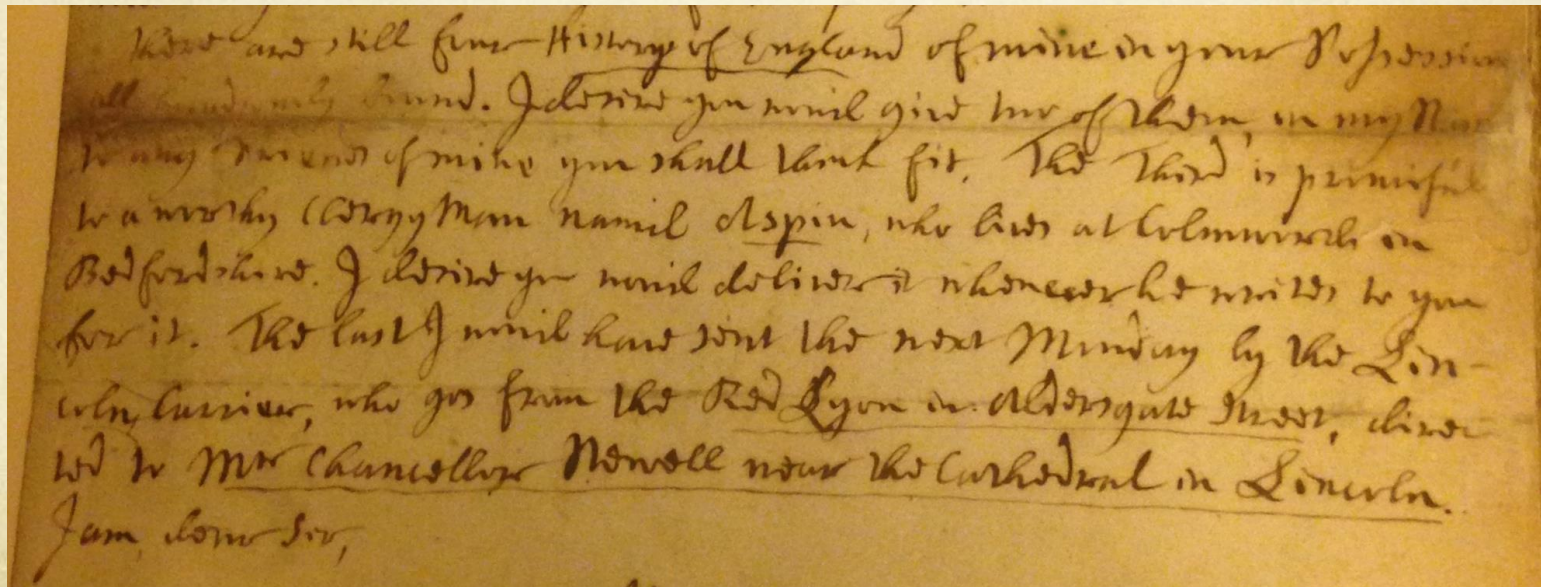 there are still four History of England of mine in your Possession
all handsomly bound. I desire you would give two of them, in my
to any Friends of mine you shall think fit. The Third is promised
to a worthy Clergy Man named Aspin, who lives at Colmworth in
Bedfordshire. I desire you would deliver it whenever he writes to you
for it. The last I would have sent the next Munday by the Lin-
coln, Carrier, who goes from the Red Lyon in Aldersgate Street, direc
ted to Mr Chancellor Newell near the Cathedral in Lincoln.
I am, dear Sir,